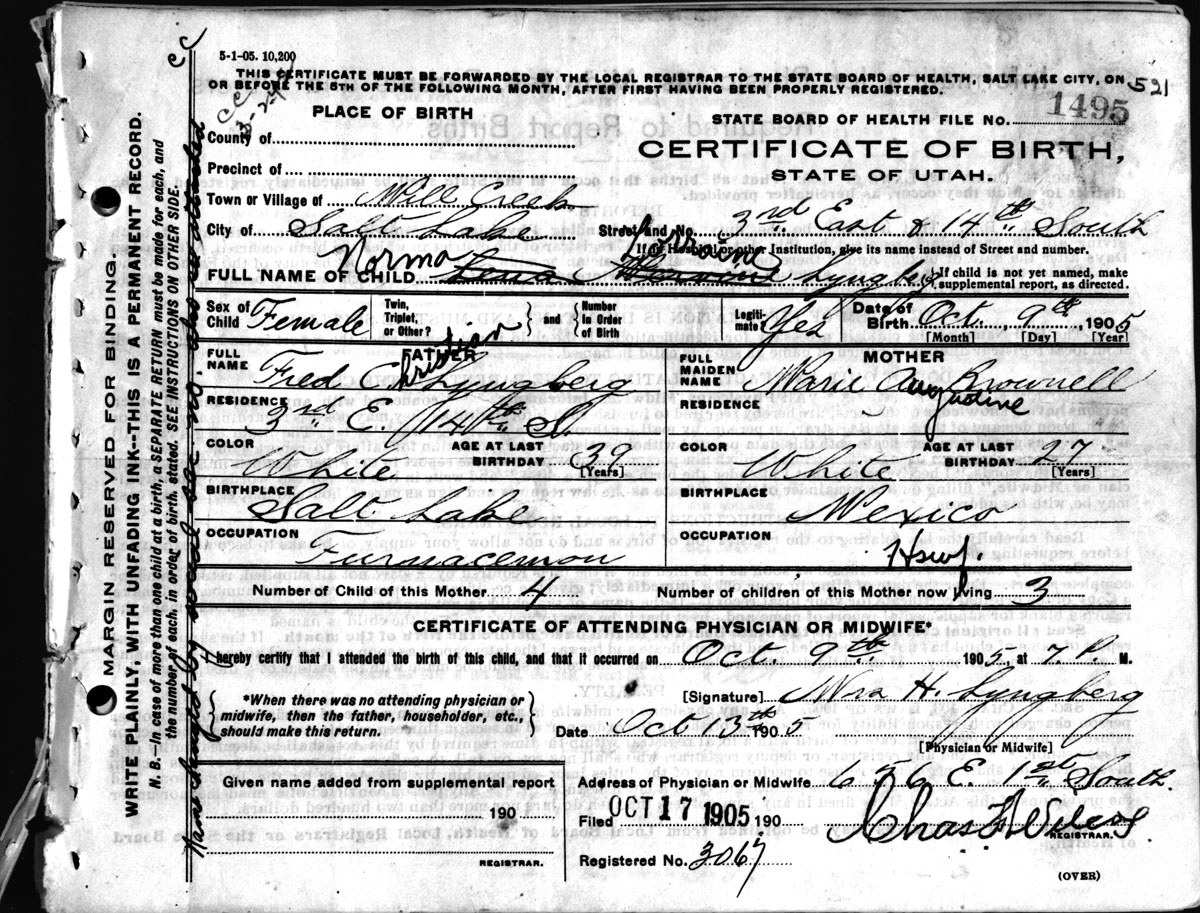 5-1-05. 10,200
THIS CERTIFICATE MUST BE FORWARDED BY THE LOCAL REGISTRAR TO THE STATE BOARD OF HEALTH, SALT LAKE CITY, ON
OR BEFORE THE 5TH OF THE FOLLOWING MONTH, AFTER FIRST HAVING BEEN PROPERLY REGISTERED.
521
PLACE OF BIRTH
STATE BOARD OF HEALTH FILE NO. 1495
County of
CERTIFICATE OF BIRTH,
STATE OF UTAH.
Precinct of
Town or Village of Mill Creek
City of Salt Lake Street and No. 3rd East & 14th South
If in Hospital or other Institution, give its name instead of Street and number.
Norma Lorraine
FULL NAME OF CHILD Lena Lyngberg
If child is not yet named, make
supplemental report, as directed.
Sex of Child Female Twin, Triplet, or Other? and Number In Order of Birth Legiti-mate? Yes Date of Birth Oct 9th, 1905
[Month] [Day] [Year]
FATHER MOTHER
FULL NAME Fred Christian Lyngberg FULL MAIDEN NAME Marie Augustine Brownell
RESIDENCE 3rd E. 14th S. RESIDENCE
COLOR White AGE AT LAST BIRTHDAY 39 [Years] COLOR White AGE AT LAST BIRTHDAY 27 [Years]
BIRTHPLACE Salt Lake BIRTHPLACE Mexico
OCCUPATION Furnacemon OCCUPATION Hswf.
Number of Child of this Mother 4 Number of children of this Mother now living 3
CERTIFICATE OF ATTENDING PHYSICIAN OR MIDWIFE*
I hereby certify that I attended the birth of this child, and that it occurred on Oct. 9th 1905, at 7. P. M.
*When there was no attending physician or
midwife, then the father, householder, etc.,
should make this return.
[Signature] Mrs H. Lyngberg
Date Oct 13th 1905
[Physician or Midwife]
Given name added from supplemental report
190
REGISTRAR.
Address of Physician or Midwife 676 E. 1st South.
Filed OCT 17 1905 190 Chas F Wilcox
REGISTRAR.
Registered No. 3067
(OVER)
MARGIN RESERVED FOR BINDING.
WRITE PLAINLY, WITH UNFADING INK--THIS IS A PERMANENT RECORD.
N. B.—In case of more than one child at a birth, a SEPARATE RETURN must be made for each, and
the number of each, in order of birth, stated. SEE INSTRUCTIONS ON OTHER SIDE.
Name changed by social sec no